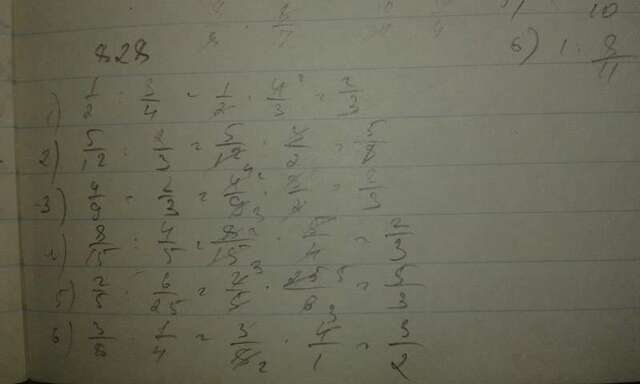 6) 1 : 8/11
828
1) 1/2 : 3/4 = 1/2 · 4/3 = 2/3
2) 5/12 : 2/3 = 5/12 · 3/2 = 5/8
3) 4/9 : 2/3 = 4/9 · 3/2 = 2/3
4) 8/15 : 4/5 = 8/15 · 5/4 = 2/3
5) 2/5 : 6/25 = 2/5 · 25/6 = 5/3
6) 3/8 : 1/4 = 3/8 · 4/1 = 3/2